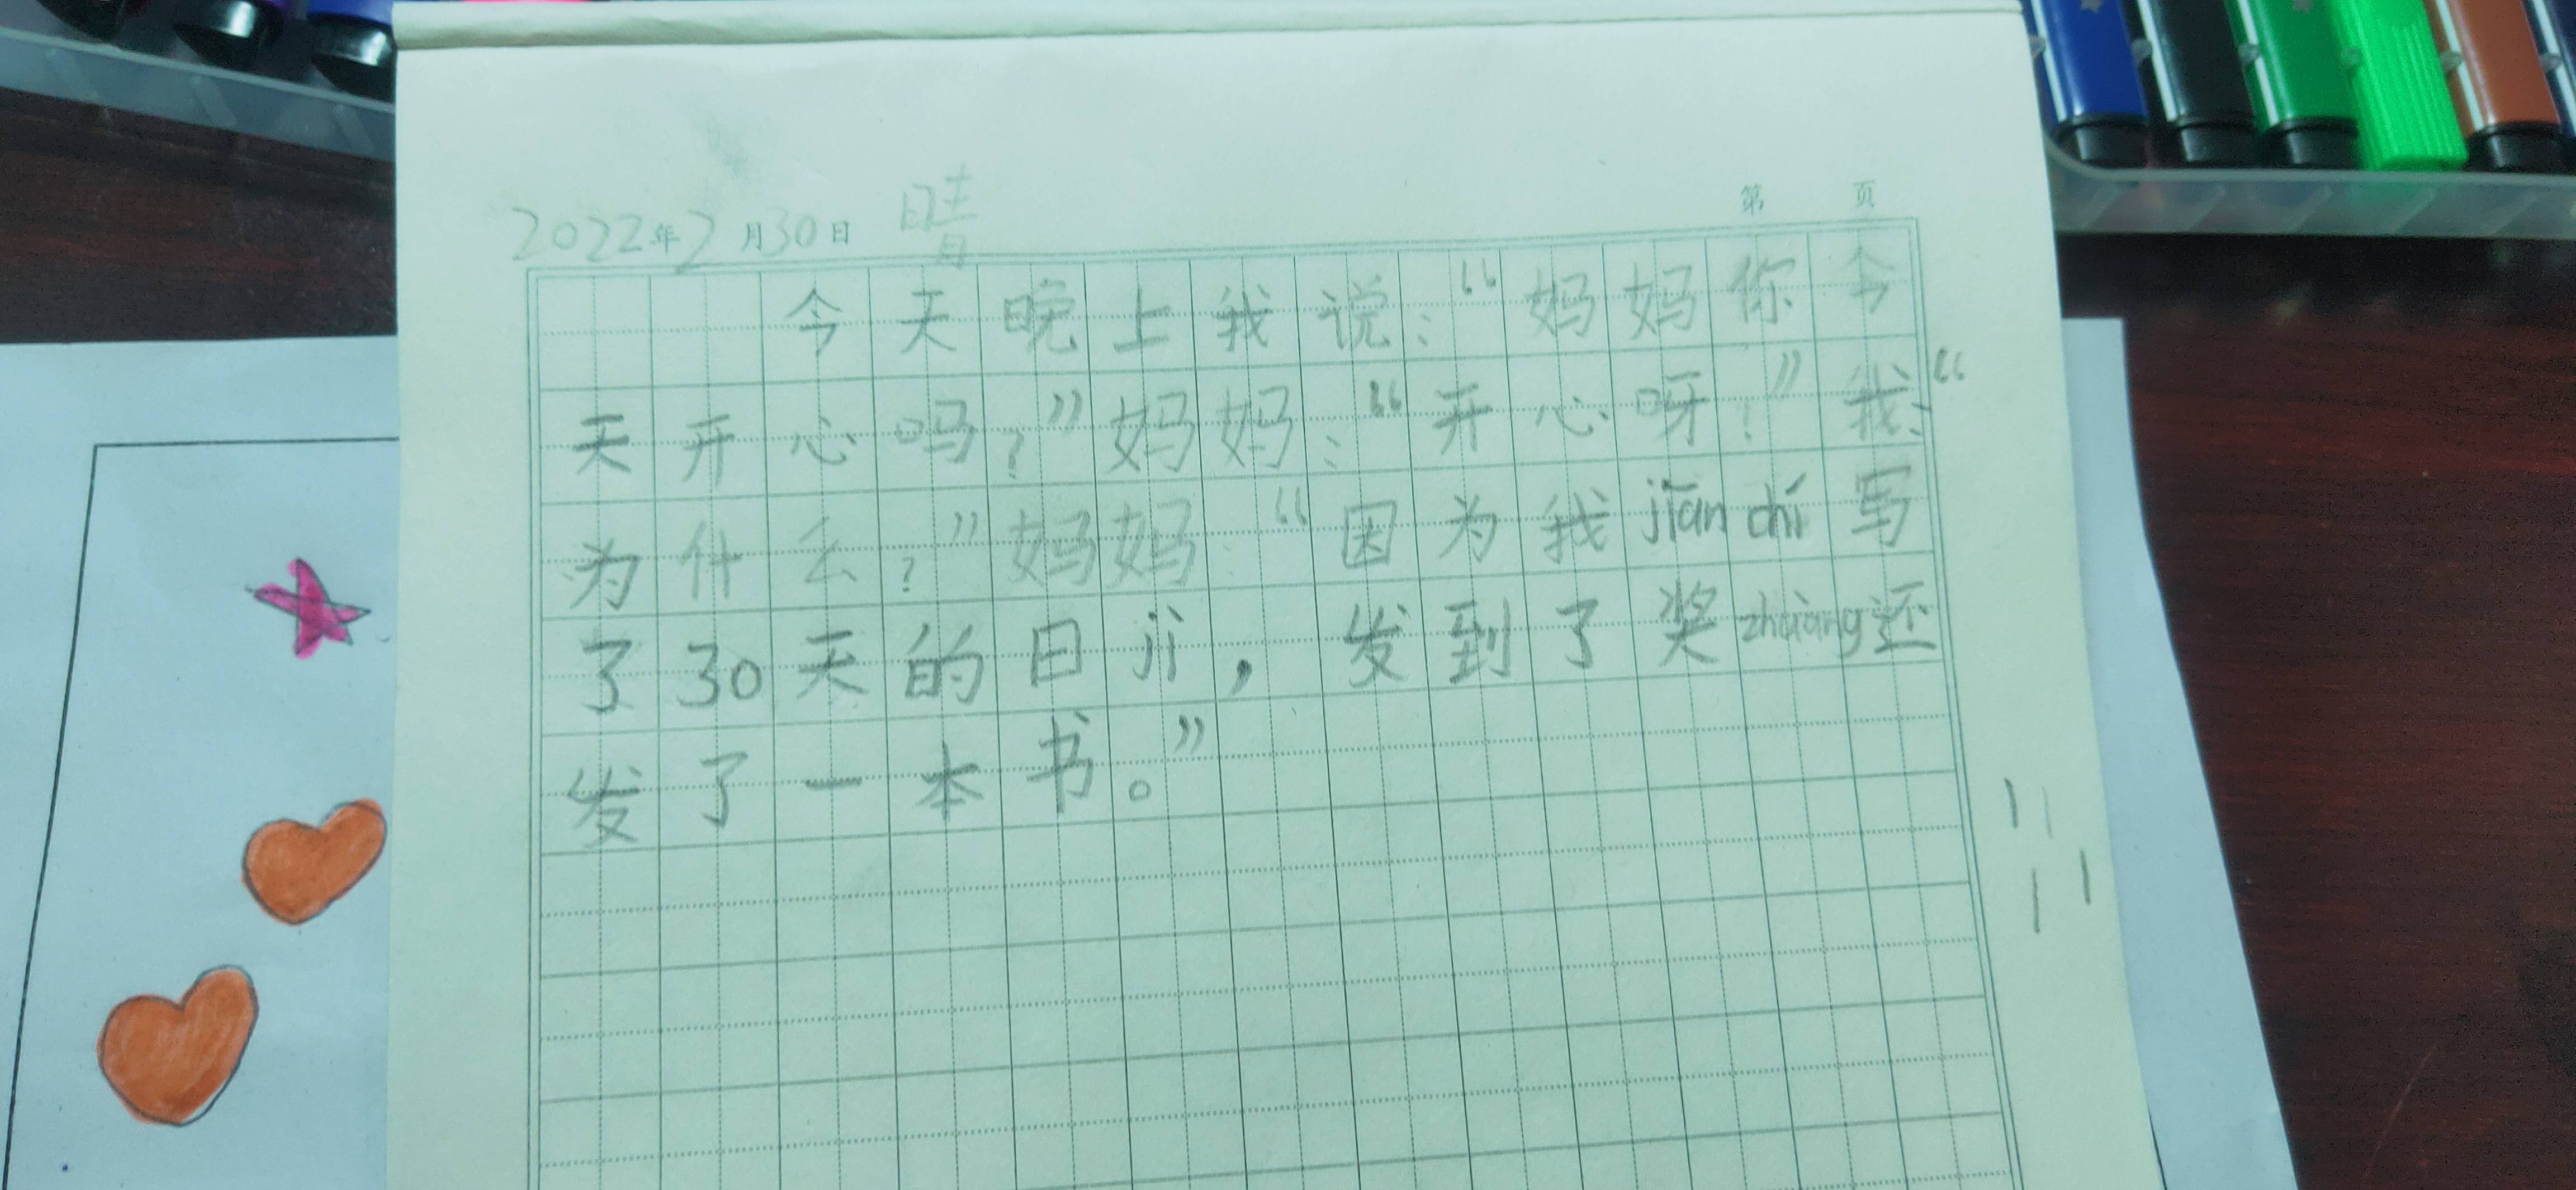 2022年2月30日 晴
第 页
今天晚上我说：“妈妈你今
天开心吗？”妈妈：“开心呀！”我：“
为什么？”妈妈：“因为我jiān chí写
了30天的日jì，发到了奖zhuàng还
发了一本书。”